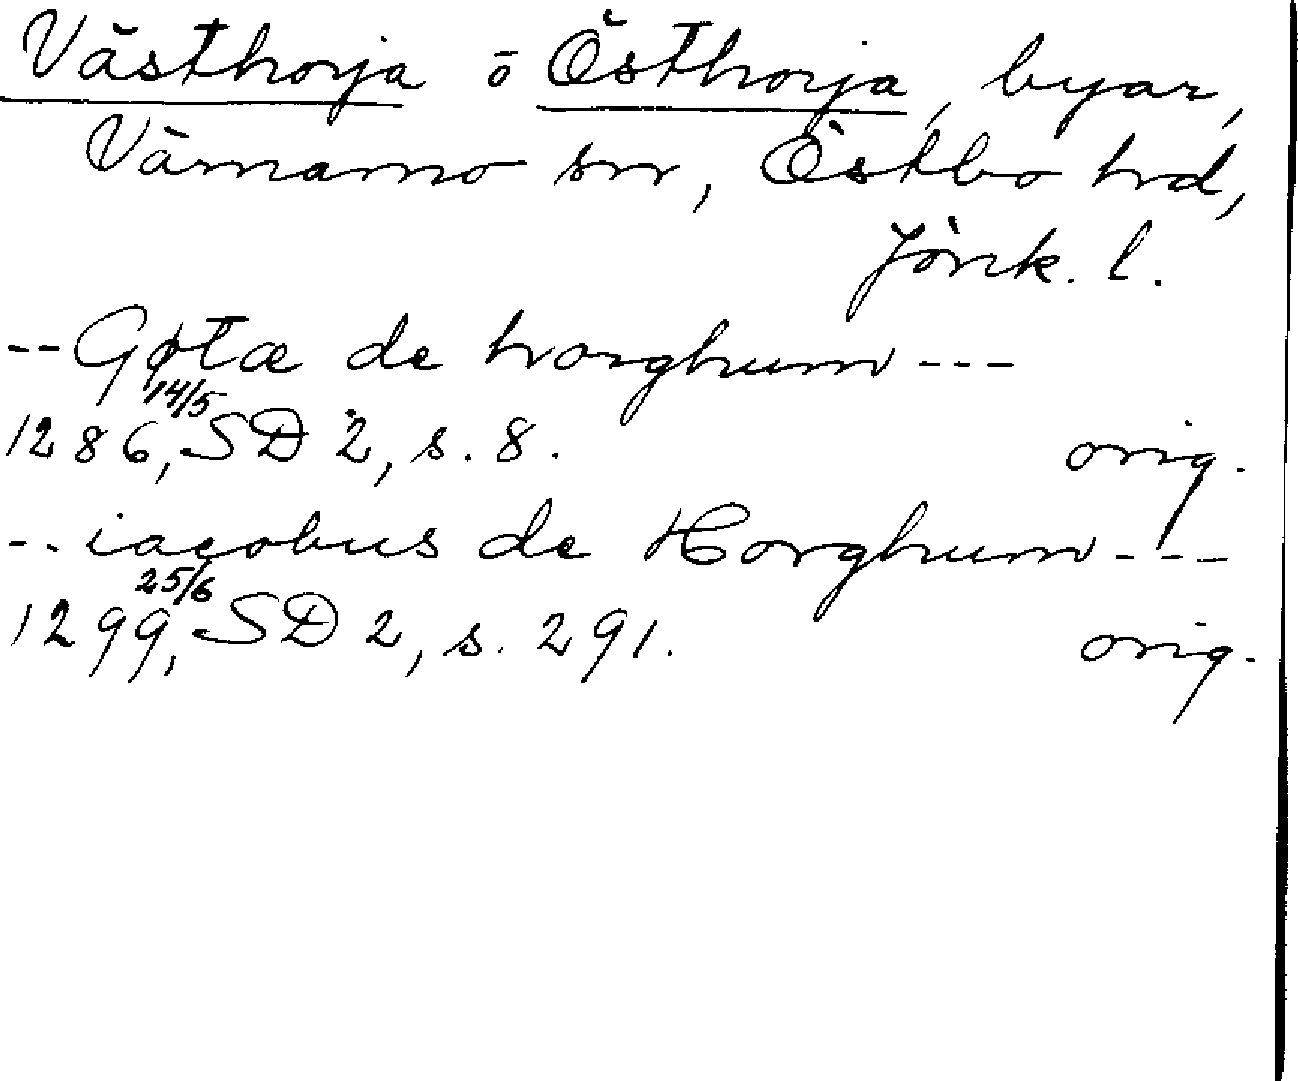 Västhorja o Östhorja, byar,
Värnamo sn, Östbo hd,
Jönk. l.
-- Gøtæ de horghum ---
1286 14/5, SD 2, s. 8. orig.
-- iacobus de Horghum ---
1299 25/6, SD 2, s. 291. orig.